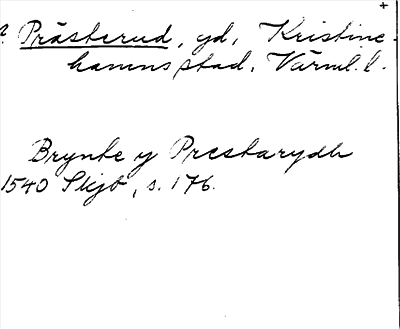 +
Prästerud, yd, Kristine-
hamns stad, Värml. l.
Brynte y Prestarydh
1540 Skjb, s. 176.